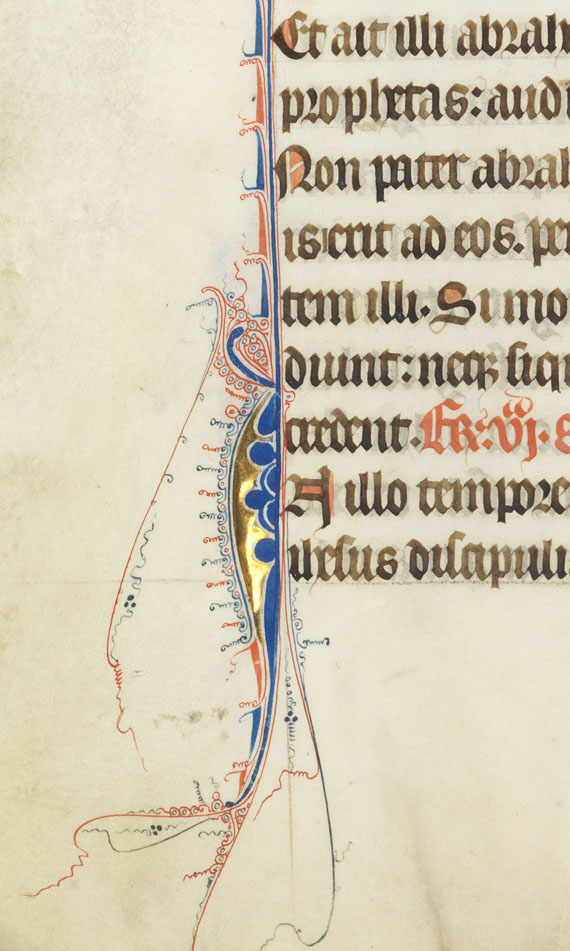 Et ait illi abrah
prophetas: audi
Non pater abrah
ierit ad eos. pe
tem illi. Si mo
diunt: neqꝫ siqu
credent. Fr̄. vj.
In illo tempore
ihesus discipuli